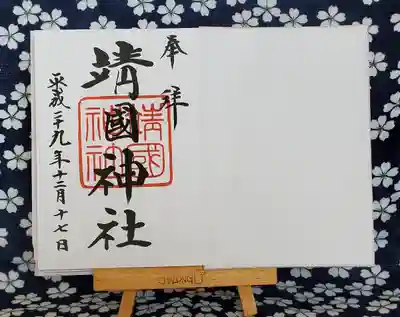 奉拝
靖國神社
平成二十九年十二月十七日